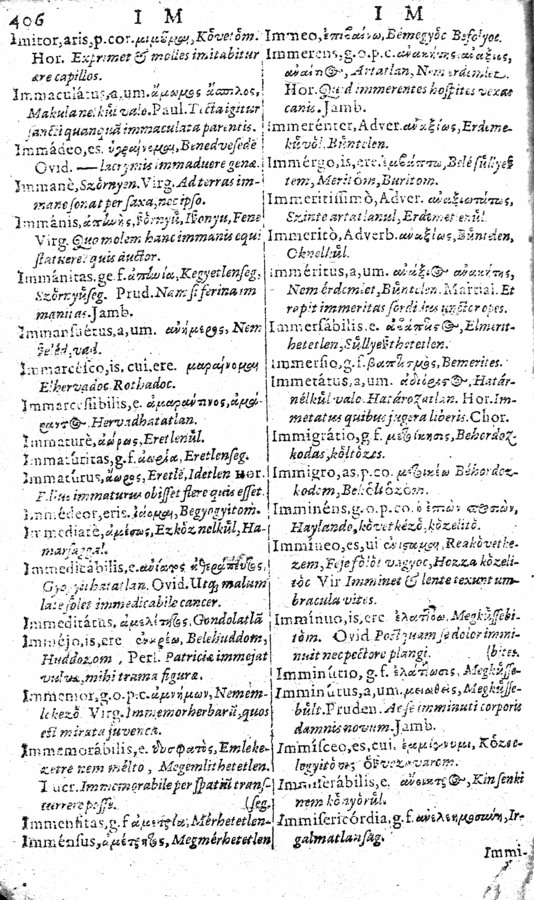 406 I M I M
Imitor, aris, p. cor. μιμοῦμαι, Kŏvetŏm.
Hor. Exprimet & molles imitabitur
ære capillos.
Immaculatus, a, um. ἄμωμος ἄσπιλος,
Makulanelkŭl valo. Paul. Tu ta igitur
sancti quanquã immaculata parentis.
Immádeo, es. ὑγραίνομαι, Benedvesedẽ
Ovid. — lacrymis immaduere genæ.
Immanè, Szŏrnyen. Virg. Ad terras im-
mane sonat per saxa, nec ipso.
Immânis, Iszonyu, Fene
Virg. Quo molem hanc immanis equi
statuere: quis auctor.
Immânitas, ge. f. Kegyetlenseg,
Szŏrnyŭseg. Prud. Nam si ferina im
manitas. Jamb.
Immansuétus, a, um. ἀνήμερος, Nem
vad.
Immarcesco, is, cui, ere. μαραίνομαι
Elhervadoc. Rothadoc.
Immarcessibilis, e. ἀμαράντινος, ἀμά-
ραντ Hervadhatatlan.
Immaturè, ἀώρως, Eretlenŭl.
Immaturitas, g. f. ἀωρία, Eretlenseg.
Immatûrus, ἄωρος, Eretlẽ, Idetlen Hor.
immaturus obisset flere quis esset.
Immédeor, eris. ἰάομαι, Begyogyitom.
Immediatè, ἀμέσως, Ezkŏz nelkŭl, Ha-
marsaggal.
Immedicábilis, e. ἀνίατος
Gyogyithatatlan. Ovid. Utq; malum
late solet immedicabile cancer.
Immeditâtus, ἀμελέτητος, Gondolatlã
Immêjo, is, ere ἐνουρέω, Belehuddom,
Huddozom, Pers. Patriciæ immejat
vulvæ, mihi trama figuræ.
Immemor, g. o. p. c. ἀμνήμων, Nemem-
lekezŏ. Virg. Immemor herbarũ, quos
est mirata juvenca.
Immemorábilis, e. Emleke-
zetre nem mẽlto, Megemlithetetlen.
Lucr. Immemorabile per spatiũ trans-
currere posse. (seg.
Immensitas, g. f. ἀμετρία, Mẽrhetetlen-
Immênsus, ἀμέτρητος, Megmérhetetlen
Immeo, ἐπιβαίνω, Bemegyŏc Befolyoc.
Immerens, g. o. p. c. ἀνάξιος,
Artatlan, Nem erdemlet.
Hor. Quid immerentes hospites vexas
canis. Jamb.
Immerénter, Adver. ἀναξίως, Erdeme-
kŭvŏl. Bŭntelen.
Immérgo, is, ere. ἐμβάπτω, Belé sŭllyes-
tem, Meritŏm, Buritom.
Immeritissimò, Adver. ἀναξιωτάτως,
Szinte artatlanul, Erdemetlenŭl.
Immeritò, Adverb. ἀναξίως, Bŭntelen,
Oknelkŭl.
Imméritus, a, um.
Nem ẽrdemlet, Bŭntelen. Martial. Et
rapit immeritas sordidus unctor opes.
Immersábilis. e. Elmerit-
hetetlen, Sŭllyesthetetlen.
Immersio, g. f. βαπτισμός, Bemerites.
Immetâtus, a, um. Határ-
nelkŭl valo. Határozatlan. Hor. Im-
metatus quibus jugera liberis. Chor.
Immigrâtio, g. f. μετοίκησις, Behordoz
kodas, kŏltŏzes.
Immigro, as, p. co. μετοικέω Behordoz-
kodom, Bekŏltŏzŏm.
Imminêns, g. o. p. co. ὁ ἐπὼν
Haylando, kŏvetkezŏ, kŏzelitŏ.
Immineo, es, ui Reakŏvetke-
zem, Feje fŏlŏt vagyoc, Hozza kŏzeli-
tŏc Vir Imminet & lentæ texunt um-
bracula vites.
Imminuo, is, ere ἐλαττόω, Megkŭssebi-
tŏm. Ovid Postquam se dolor immi-
nuit nec pectore plangi. (bites.
Imminûtio, g. f. ἐλάττωσις, Megkŭsse-
Imminûtus, a, um. μειωθείς, Megkŭsse-
bŭlt. Pruden. Ac se imminuti corporis
damnis novum. Jamb.
Immisceo, es, cui. ἐμμίγνυμι, Kŏzze-
legyitŏm,
Immiserábilis, e. Kinsenki
nem kŏnyŏrŭl.
Immisericórdia, g. f. ἀνελεημοσύνη, Ir-
galmatlansag.
Immi-